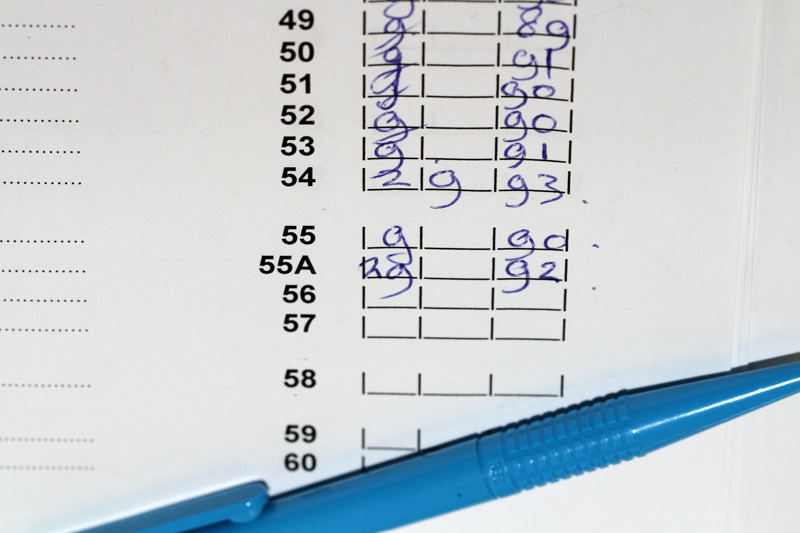 49 9 89
50 9 91
51 9 90
52 9 90
53 9 91
54 2 9 93
55 9 90
55A 29 92
56
57
58
59
60